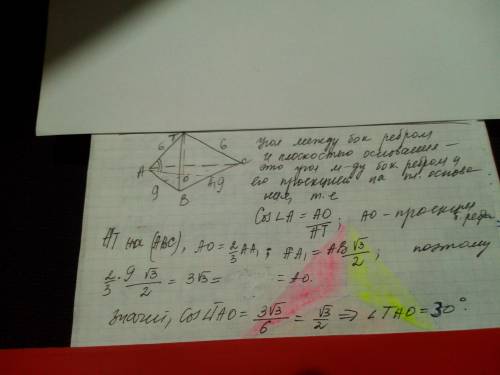 T
6
6
A
C
O
9
9
B
Угол между бок ребром
и плоскостью основания –
это угол м-ду бок ребром и
его проекцией на пл. основа
ния, т.е
Cos∠A = AO/AT; AO – проекция
ребра
AT на (ABC), AO = 2/3 AA₁; AA₁ = AB √3/2; поэтому
2/3 · 9 √3/2 = 3√3 = = AO.
Значит, Cos∠TAO = 3√3/6 = √3/2 ⇒ ∠TAO = 30°.